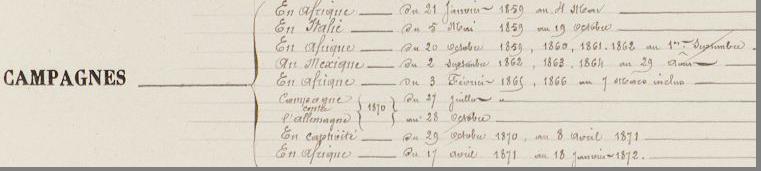 En Afrique du 21 Janvier 1859 au 4 Mai
En Italie du 5 Mai 1859 au 19 Octobre
En Afrique du 20 Octobre 1859, 1860, 1861. 1862 au 1er Septembre
CAMPAGNES
Au Mexique du 2 Septembre 1862, 1863, 1864 au 29 Août
En Afrique du 3 Février 1865, 1866 au 7 Mars inclus
Campagne contre l'allemagne 1870 du 27 Juillet
au 28 Octobre
En captivité du 29 Octobre 1870, au 8 Avril 1871
En Afrique du 17 avril 1871 au 18 Janvier 1872.